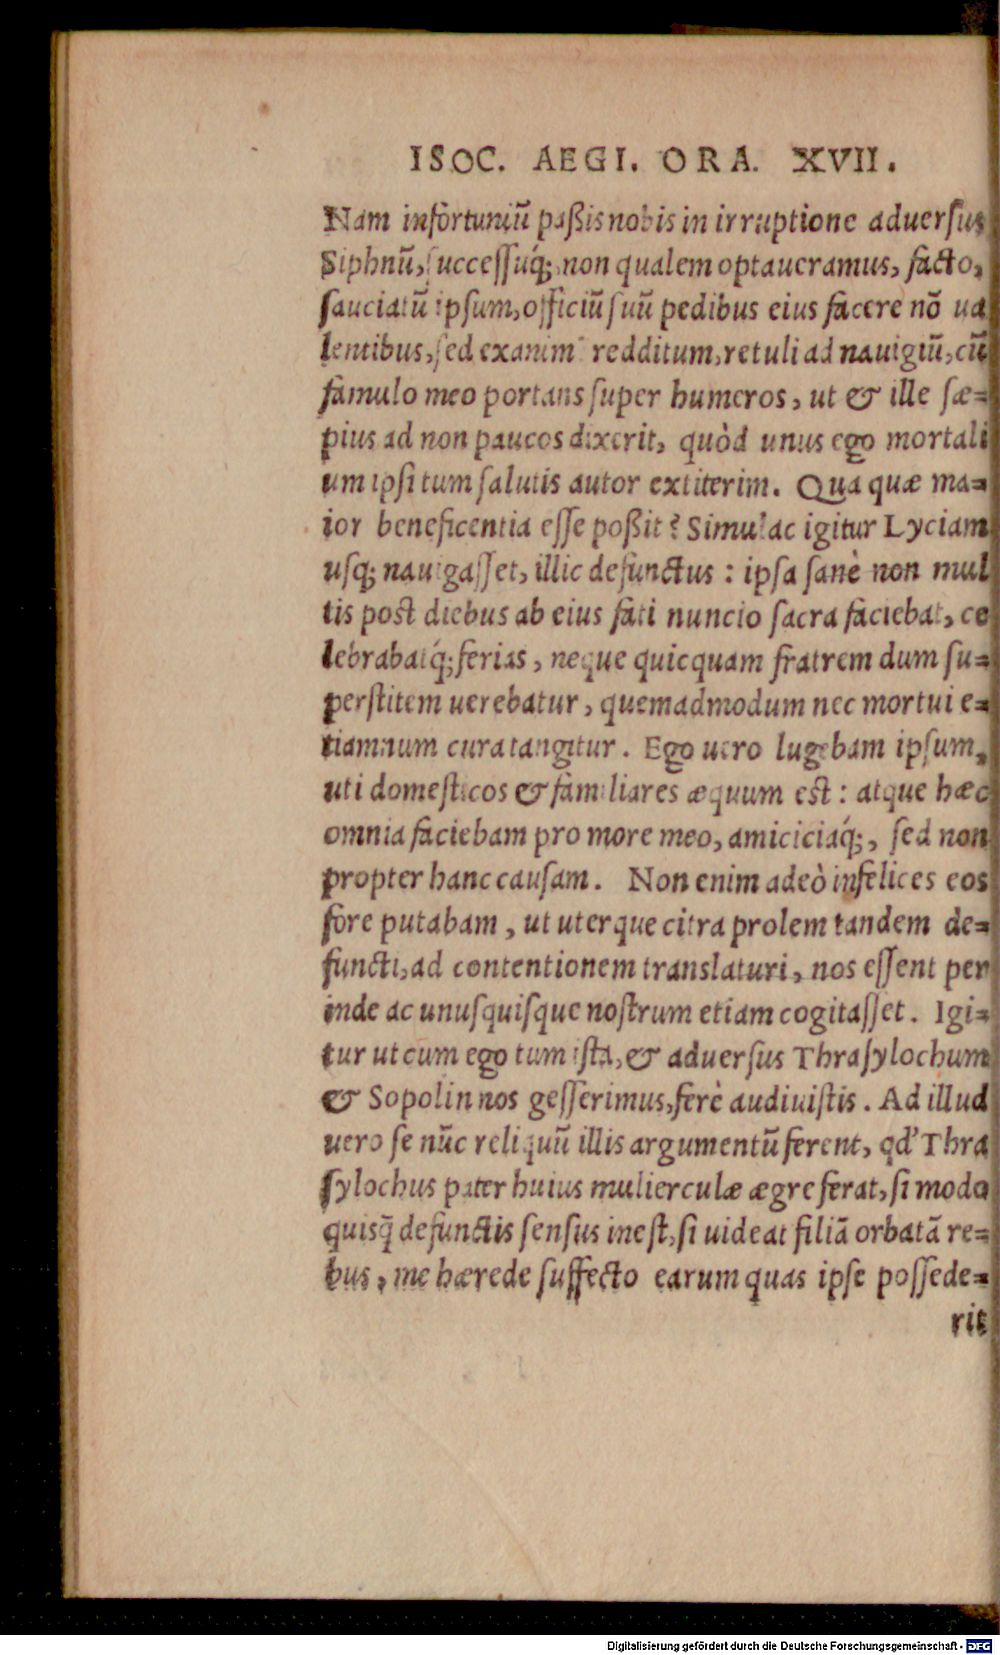 ISOC. AEGI. ORA. XVII.
Nam infortuniũ paßis nobis in irruptione aduersus
Siphnũ, successuq́;, non qualem optaueramus, facto,
sauciatũ ipsum, officiũ suũ pedibus eius facere nõ ua
lentibus, sed exanimẽ redditum, retuli ad nauigiũ, cũ
famulo meo portans super humeros, ut & ille sæ=
pius ad non paucos dixerit, quòd unus ego mortali
um ipsi tum salutis autor extiterim. Qua quæ ma=
ior beneficentia esse poßit? Simulac igitur Lyciam
usq; nauigasset, illic defunctus: ipsa sanè non mul
tis post diebus ab eius fati nuncio sacra faciebat, ce
lebrabatq́; ferias, neque quicquam fratrem dum su=
perstitem uerebatur, quemadmodum nec mortui e=
tiamnum cura tangitur. Ego uero lugebam ipsum,
uti domesticos & familiares æquum est: atque hæc
omnia faciebam pro more meo, amiciciaq́;, sed non
propter hanc causam. Non enim adeò infelices eos
fore putabam, ut uterque citra prolem tandem de=
functi, ad contentionem translaturi, nos essent per
inde ac unusquisque nostrum etiam cogitasset. Igi=
tur ut cum ego tum ista, & aduersus Thrasylochum
& Sopolin nos gesserimus, ferè audiuistis. Ad illud
uero se nũc reliquũ illis argumentũ ferent, qd' Thra
sylochus pater huius mulierculæ ægre ferat, si modo
quisq̃ defunctis sensus inest, si uideat filiã orbatã re=
bus, me hærede suffecto earum quas ipse possede=
rit
Digitalisierung gefördert durch die Deutsche Forschungsgemeinschaft - DFG